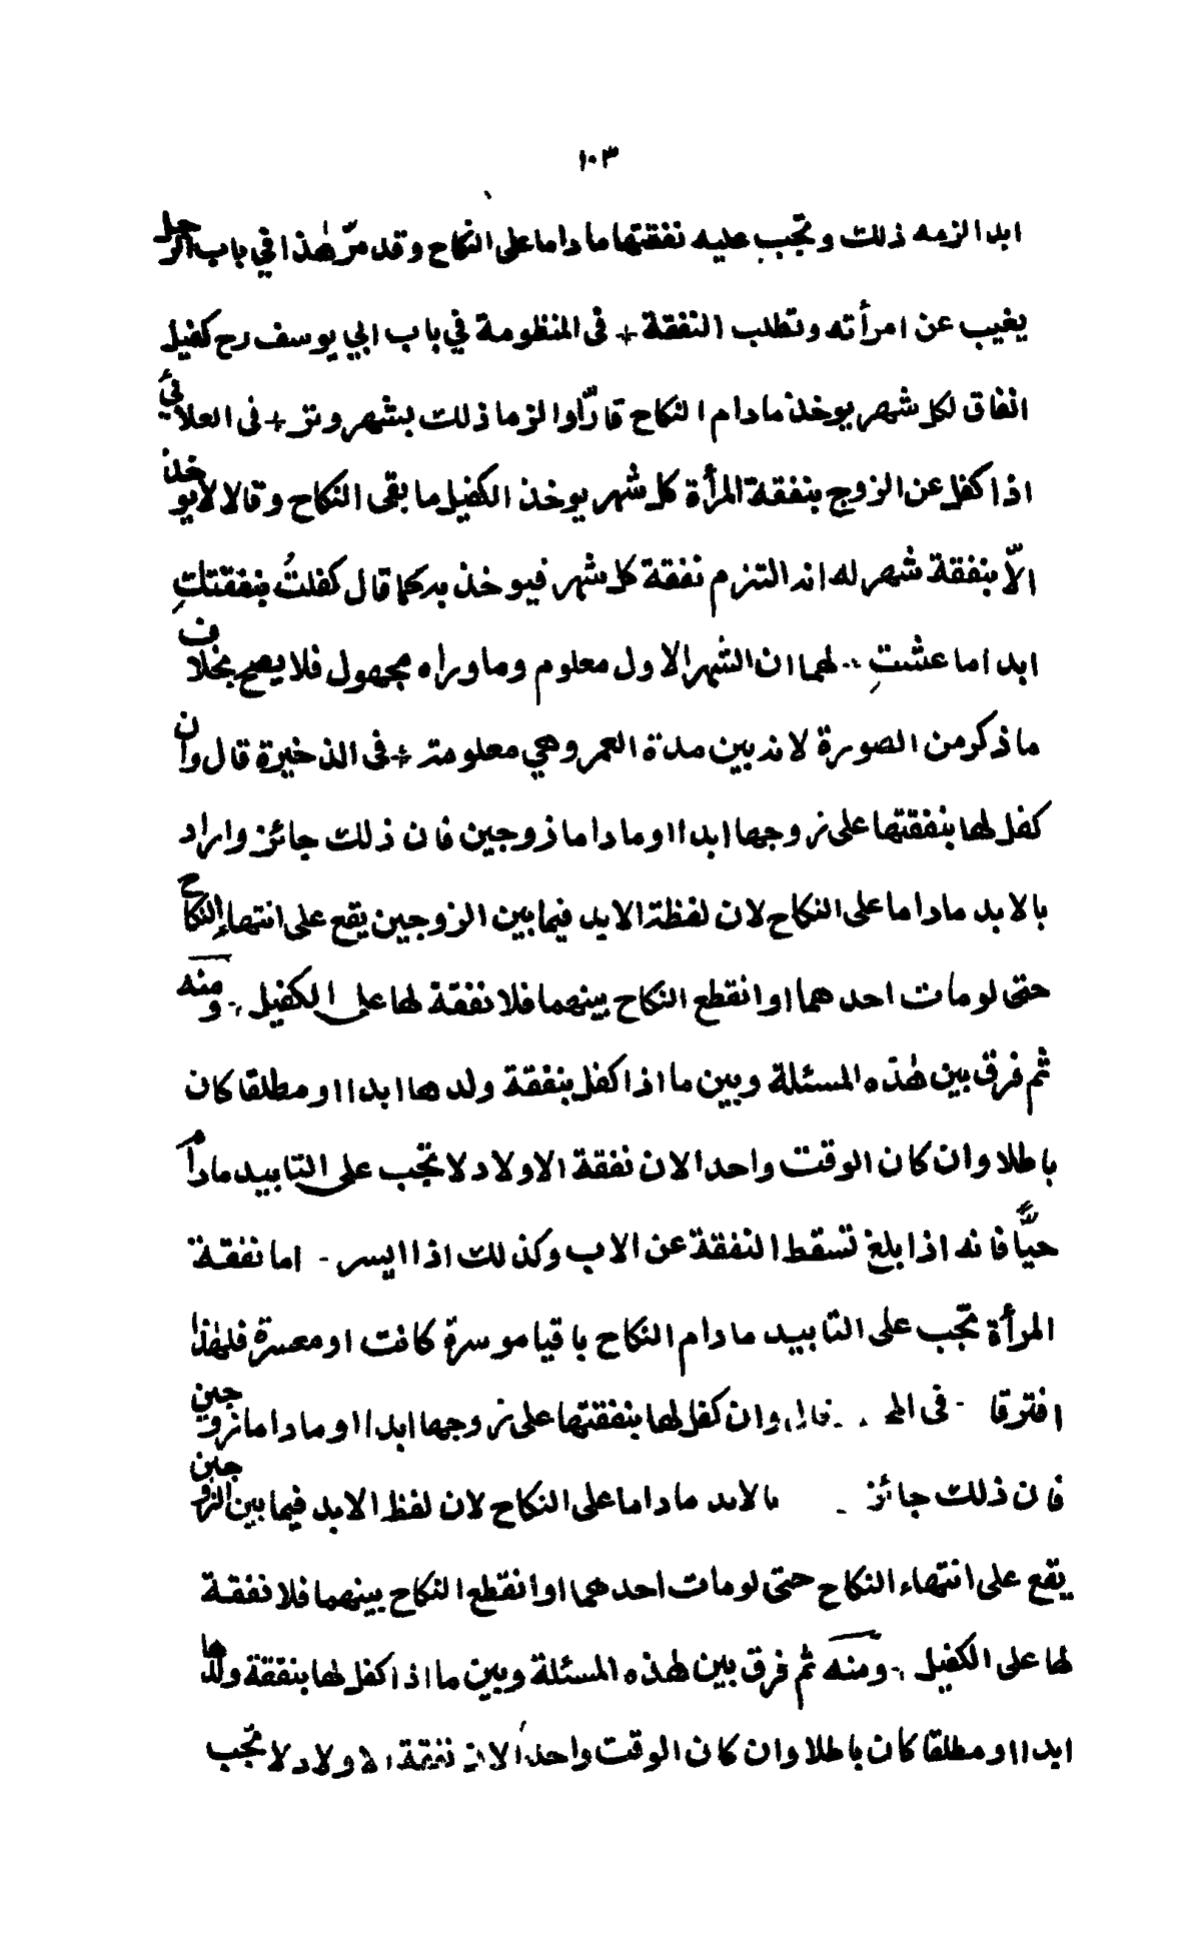 ١٠٣
ابدا لزمه ذلك وتجب عليه نفقتها ما داما على النكاح وقد مرّ هٰذا في باب الرجل
يغيب عن امرأته وتطلب النفقة + فى المنظومة في باب ابي يوسف رح كفيل
انفاق لكل شهر يوخذ ما دام النكاح قارّا والزما ذلك بشهر ونز + فى العلائي
اذا كفل عن الزوج بنفقة المرأة كل شهر يوخذ الكفيل ما بقى النكاح وقالا لا يوخذ
الّا بنفقة شهر له انه التزم نفقة كل شهر فيوخذ به كما قال كفلتُ بنفقتكِ
ابدا ما عشتِ ∴ لهما ان الشهر الاول معلوم وما وراه مجهول فلا يصح بخلاف
ما ذكر من الصورة لانه بين مدة العمر وهي معلومة + فى الذخيرة قال وان
كفل لها بنفقتها على زوجها ابدا او ما داما زوجين فان ذلك جائز واراد
بالابد ما داما على النكاح لان لفظة الابد فيما بين الزوجين يقع على انتهاء النكاح
حتى لو مات احدهما او انقطع النكاح بينهما فلا نفقة لها على الكفيل ∴ ومنه
ثم فرق بين هٰذه المسئلة وبين ما اذا كفل بنفقة ولدها ابدا او مطلقا كان
باطلا وان كان الوقت واحدا لان نفقة الاولاد لا تجب على التابيد ما دام
حيًّا فانه اذا بلغ تسقط النفقة عن الاب وكذلك اذا ايسر - اما نفقة
المرأة تجب على التابيد ما دام النكاح باقيا موسرة كانت او معسرة فلهٰذا
افترقا - فى قال وان كفل لها بنفقتها على زوجها ابدا او ما داما زوجين
فان ذلك جائز بالابد ما داما على النكاح لان لفظ الابد فيما بين الزوجين
يقع على انتهاء النكاح حتى لو مات احدهما او انقطع النكاح بينهما فلا نفقة
لها على الكفيل ∴ ومنه ثم فرق بين هٰذه المسئلة وبين ما اذا كفل لها بنفقة ولدها
ابدا او مطلقا كان باطلا وان كان الوقت واحدا لان نفقة الاولاد لا تجب